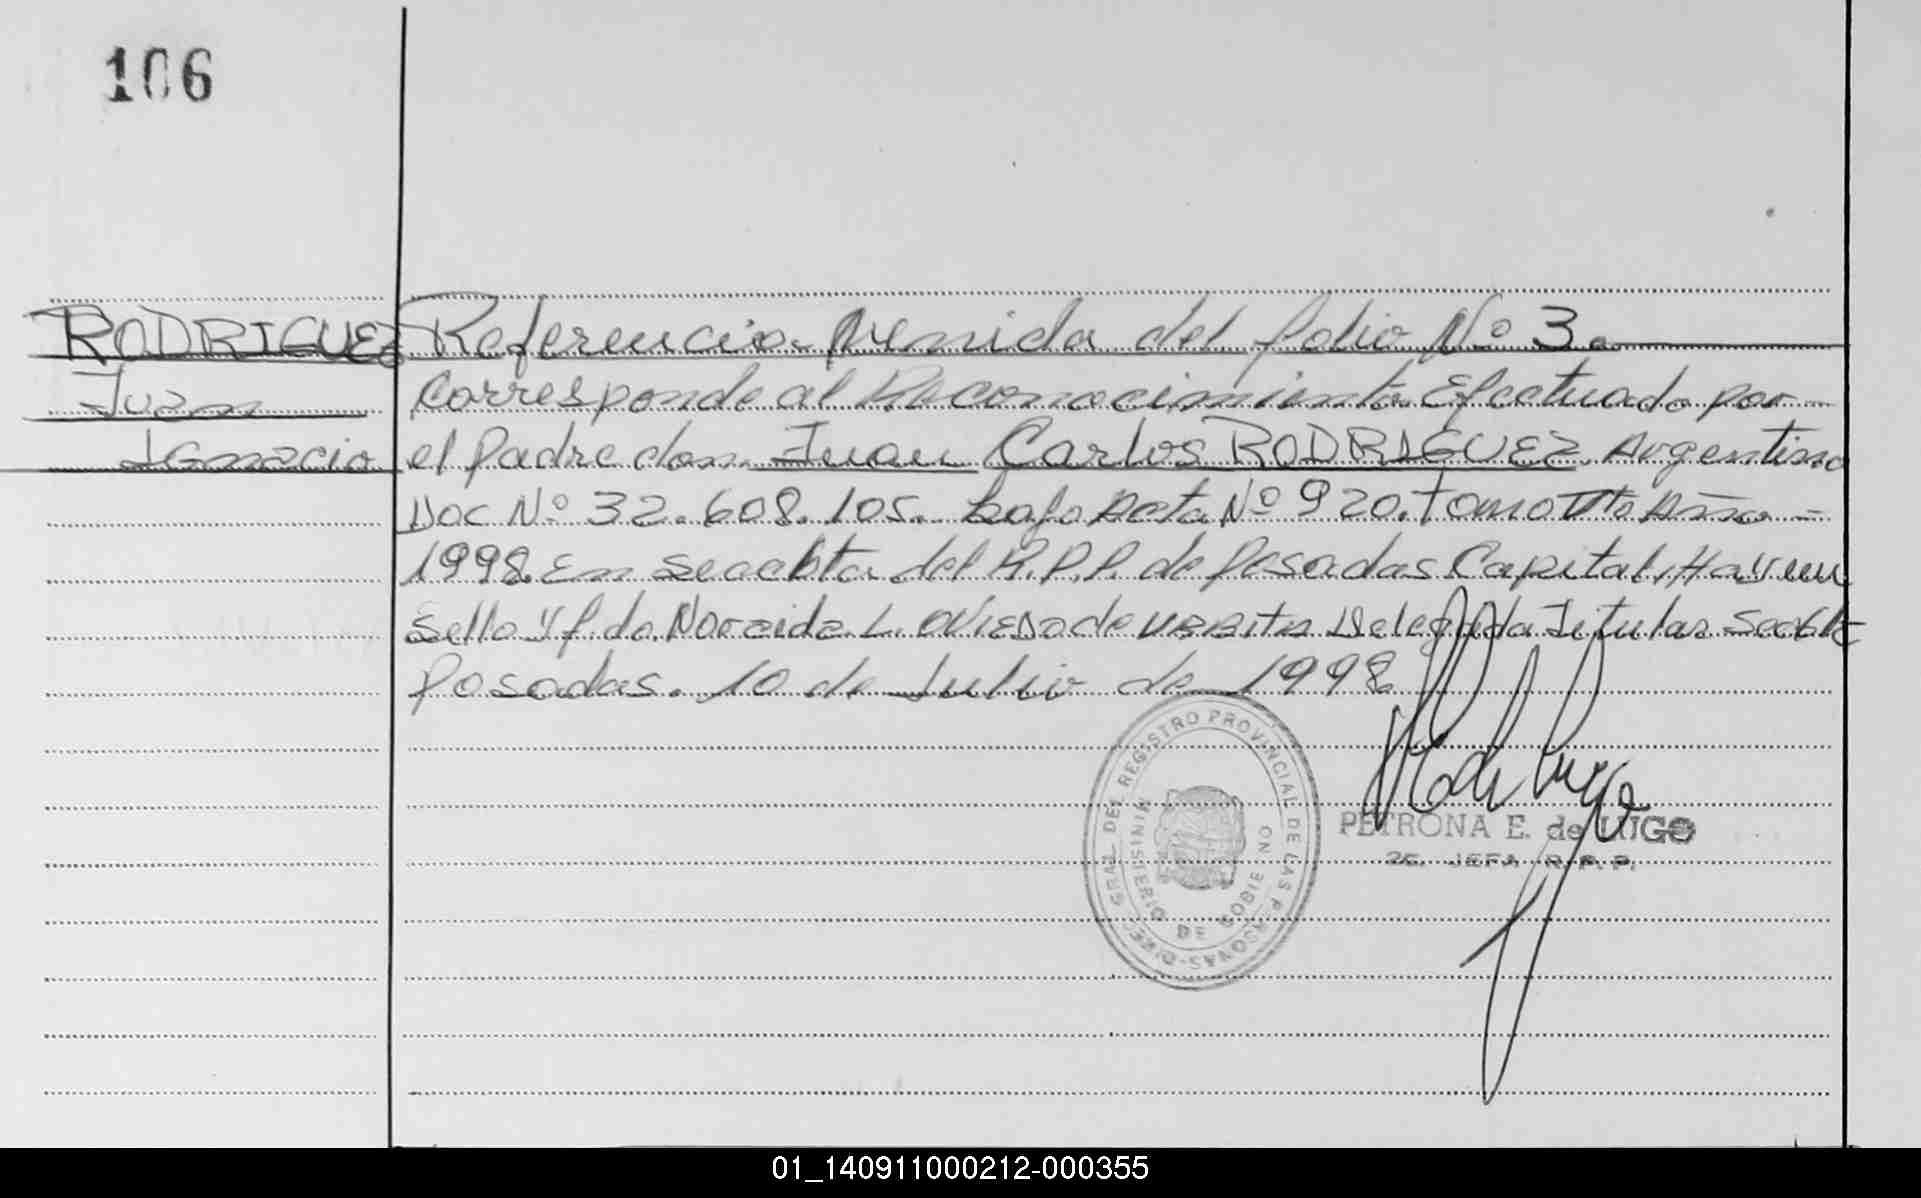 106
RODRIGUEZ
Juan
Ignacio
Referencia Venida del folio Nº 3.
Corresponde al Reconocimiento Efectuado por
el Padre don Juan Carlos RODRIGUEZ Argentino
Doc Nº 32.608.105. bajo Acta Nº 920. Tomo Año -
1998. En del R.P.P. de Posadas Capital. Hay un
Sello y f. do. L. OVIEDO de URBITA Delegada Titular
Posadas. 10 de Julio de 1998
DIREC. GRAL. DEL REGISTRO PROVINCIAL DE LAS PERSONAS
MINISTERIO DE GOBIERNO
PETRONA E. de LUGO
JEFA R.P.P.
01_140911000212-000355